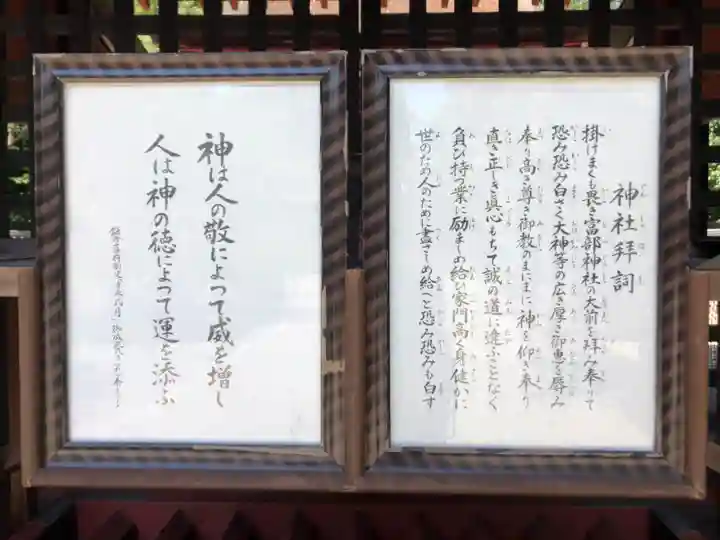 神社拝詞
掛けまくも畏き富部神社の大前を拝み奉りて
恐み恐み白さく大神等の広き厚き御恵を辱み
奉り高き尊き御教のまにまに神を仰ぎ奉り
直き正しき眞心もちて誠の道に違ふことなく
負ひ持つ業に励ましめ給ひ家門高く身健かに
世のため人のために盡さしめ給へと恐み恐みも白す
神は人の敬によって威を増し
人は神の徳によって運を添ふ